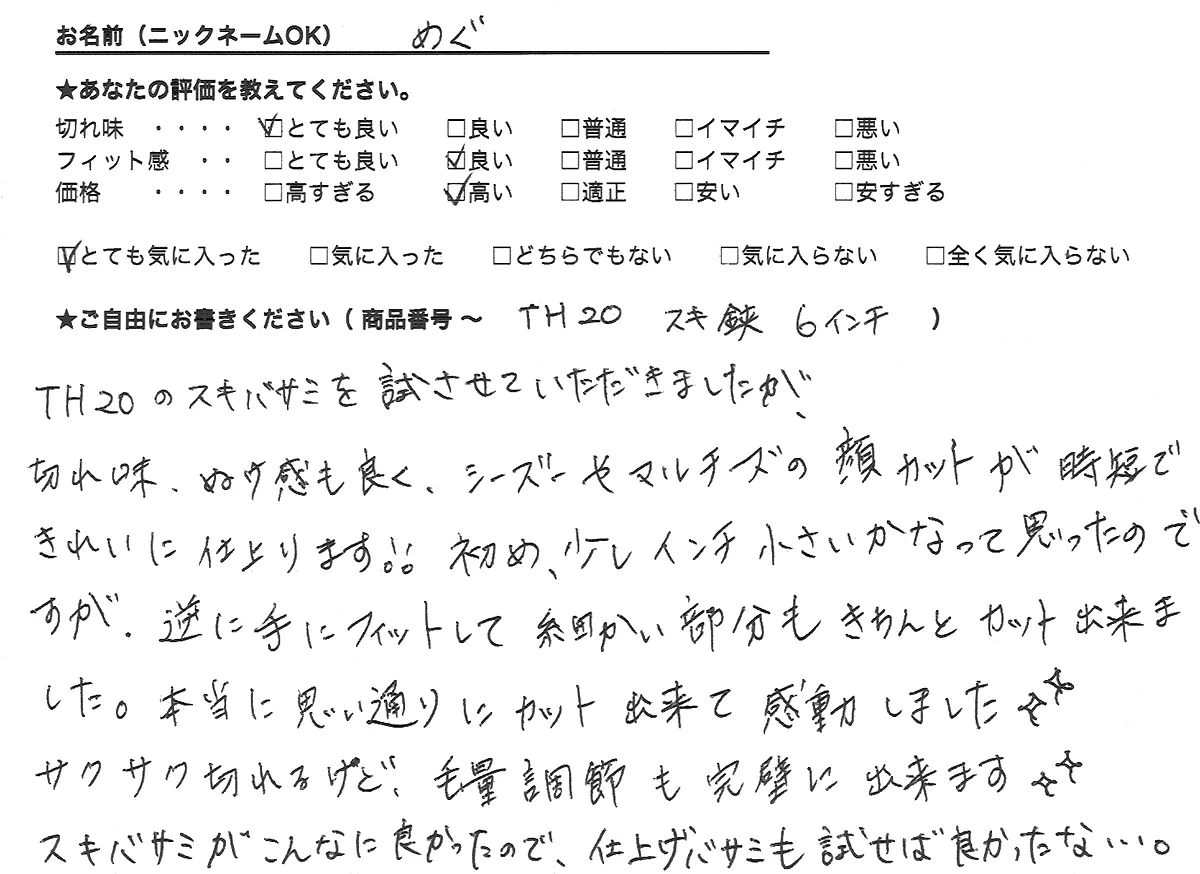 お名前（ニックネームOK） めぐ
★あなたの評価を教えてください。
切れ味 ・・・・ ☑とても良い □良い □普通 □イマイチ □悪い
フィット感 ・・ □とても良い ☑良い □普通 □イマイチ □悪い
価格 ・・・・ □高すぎる ☑高い □適正 □安い □安すぎる
☑とても気に入った □気に入った □どちらでもない □気に入らない □全く気に入らない
★ご自由にお書きください（ 商品番号 ～ TH20 スキ鋏 6インチ ）
TH20のスキバサミを試させていただきましたが、
切れ味、ぬけ感も良く、シーズーやマルチーズの顔カットが時短で
きれいに仕上ります!! 初め、少しインチ小さいかなって思ったので
すが、逆に手にフィットして細かい部分もきちんとカット出来ま
した。本当に思い通りにカット出来て感動しました☆☆
サクサク切れるけど、毛量調節も完璧に出来ます☆☆
スキバサミがこんなに良かったので、仕上げバサミも試せば良かったな…。